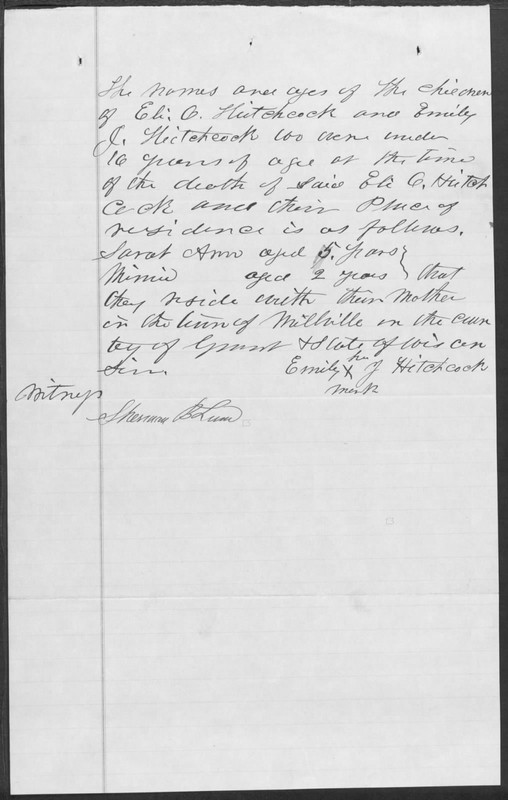 The names and ages of the children
of Eli C. Hitchcock and Emily
J. Hitchcock who were under
16 years of age at the time
of the death of said Eli C. Hitch
Cock and their Place of
residence is as follows.
Sarah Ann aged 5. years }
Minnie aged 2 years } that
they reside with their Mother
in the town of Millville in the coun
ty of Grant & State of wis con
sin. Emily X J Hitchcock
her
mark
Witness
Sherman B